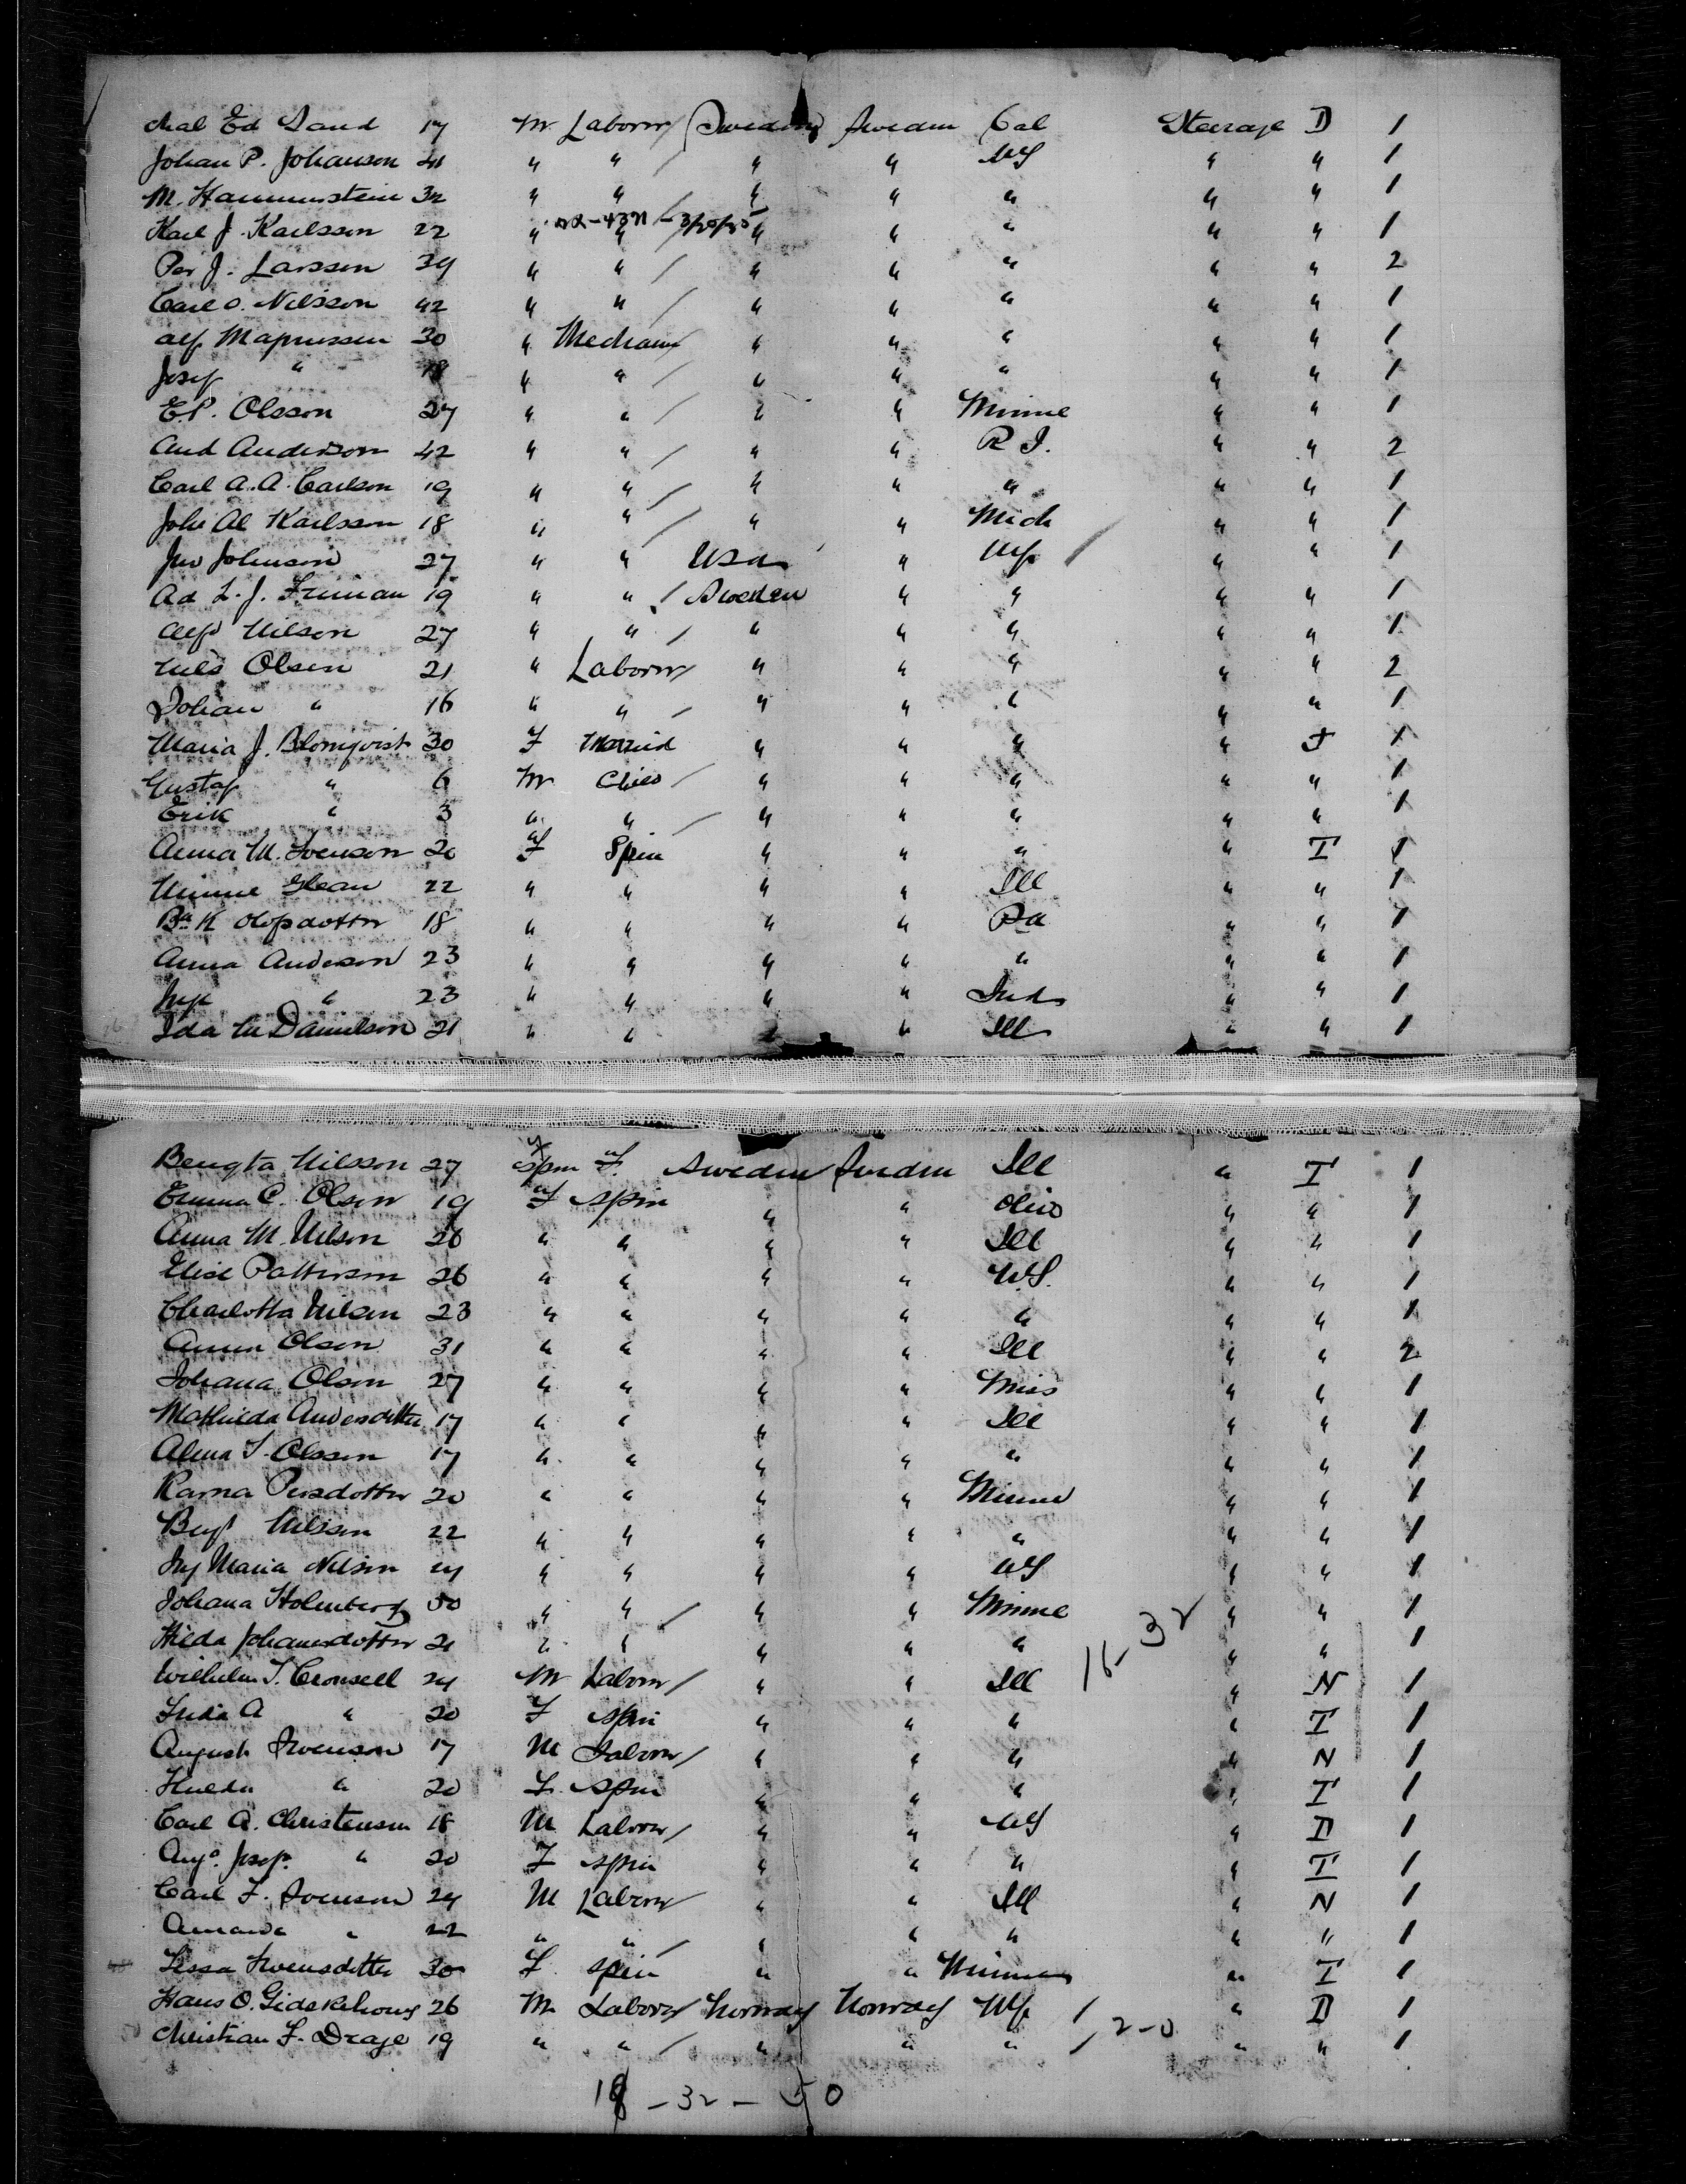 Ed Sand 17 M Laborer / Sweden Sweden Cal Steerage D 1
Johan P. Johanson 41 " " / " " NY " " 1
M. Hammerstein 32 " " / " " " " " 1
Karl J. Karlsson 22 " " " " " " " 1
Per J. Larsson 34 " " / " " " " " 2
Carl O. Nilsson 42 " " / " " " " " 1
Alf Magnussen 30 " Mechanic / " " " " " 1
Josef " 18 " " / " " " " " 1
E.P. Olsson 27 " " / " " Minne " " 1
And Anderson 42 " " / " " R I. " " 2
Carl A. A. Carlson 19 " " / " " " " " 1
Joh Al Karlsson 18 " " / " " Mich " " 1
Jno Johnson 27 " " USA " NY / " " 1
Ad L. J. Friman 19 " " / Sweden " " " " 1
Alfd Nilson 27 " " / " " " " " 1
Nils Olsen 21 " Laborer / " " " " " 2
Johan " 16 " " / " " " " " 1
Maria J. Blomqvist 30 F Married " " " " I 1
Gustaf " 6 M Child / " " " " " 1
Erik " 3 " " / " " " " " 1
Anna M. Svenson 20 F Spin " " " " I 1
Minnie 22 " " " " Ill " " 1
K Olofsdotter 18 " " " " Pa " " 1
Anna Anderson 23 " " " " " " " 1
" 23 " " " " Ind " " 1
Ida M Danielson 21 " " " " Ill " " 1
Bengta Nilsson 27 Spin F Sweden Sweden Ill " I 1
Emma C. Olson 19 F Spin " " Ohio " " 1
Anna M. Nilson 26 " " " " Ill " " 1
Elise Patterson 26 " " " " NY. " " 1
Charlotta Nilsen 23 " " " " " " " 1
Anna Olson 31 " " " " Ill " " 2
Johana Olson 27 " " " " Miss " " 1
Mathilda Andersdotter 17 " " " " Ill " " 1
Alma S. Olsson 17 " " " " " " " 1
Karna Persdotter 20 " " " " Minne " " 1
Bengt Nilsson 22 " " " " " " " 1
Ing Maria Nilson 24 " " " " NY " " 1
Johana Holmberg 50 " " / " " Minne " " 1
Hilda Johansdotter 21 " " " " " " " 1
16-32
Wilhelm T. Cronsell 24 M Laborer / " " Ill " N 1
A " 20 F Spin " " " " I 1
August Svenson 17 M Laborer / " " " " N 1
Hulda " 20 F. Spin " " " " I 1
Carl A. Christensen 18 M Laborer / " " NY " D 1
Aug. Josep. " 20 F Spin " " " " I 1
Carl F. Svenson 24 M Laborer / " " Ill " N 1
Amanda " 22 " " / " " " " " 1
Lissa Svensdotter 30 F. Spin " " Minne " I 1
Hans O. 26 M. Laborer / Norway Norway NY / " D 1
2-0
Christian F. Drage 19 " " / " " " / " " 1
18 - 32 - 50